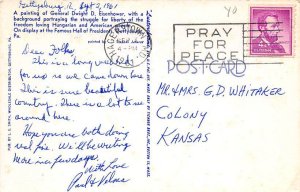 Gettysburg Pa Sept 2, 1961
A painting of General Dwight D. Eisenhower, with a
background portraying the struggle for liberty of the
Freedom loving Hungarian and American
On display at the Famous Hall of Presidents, Gettysburg,
Pa.
Dear Folks,
This is a long ways
for us so we came down here
This is sure beautiful
country. There is a lot to see
around here.
Hope you are both doing
real fine. We'll be writing
more in a few days
With Love
Paul &
4 - PM
1961
PRAY
FOR
PEACE
POST CARD
Mr & Mrs. G D. Whitaker
Colony
Kansas